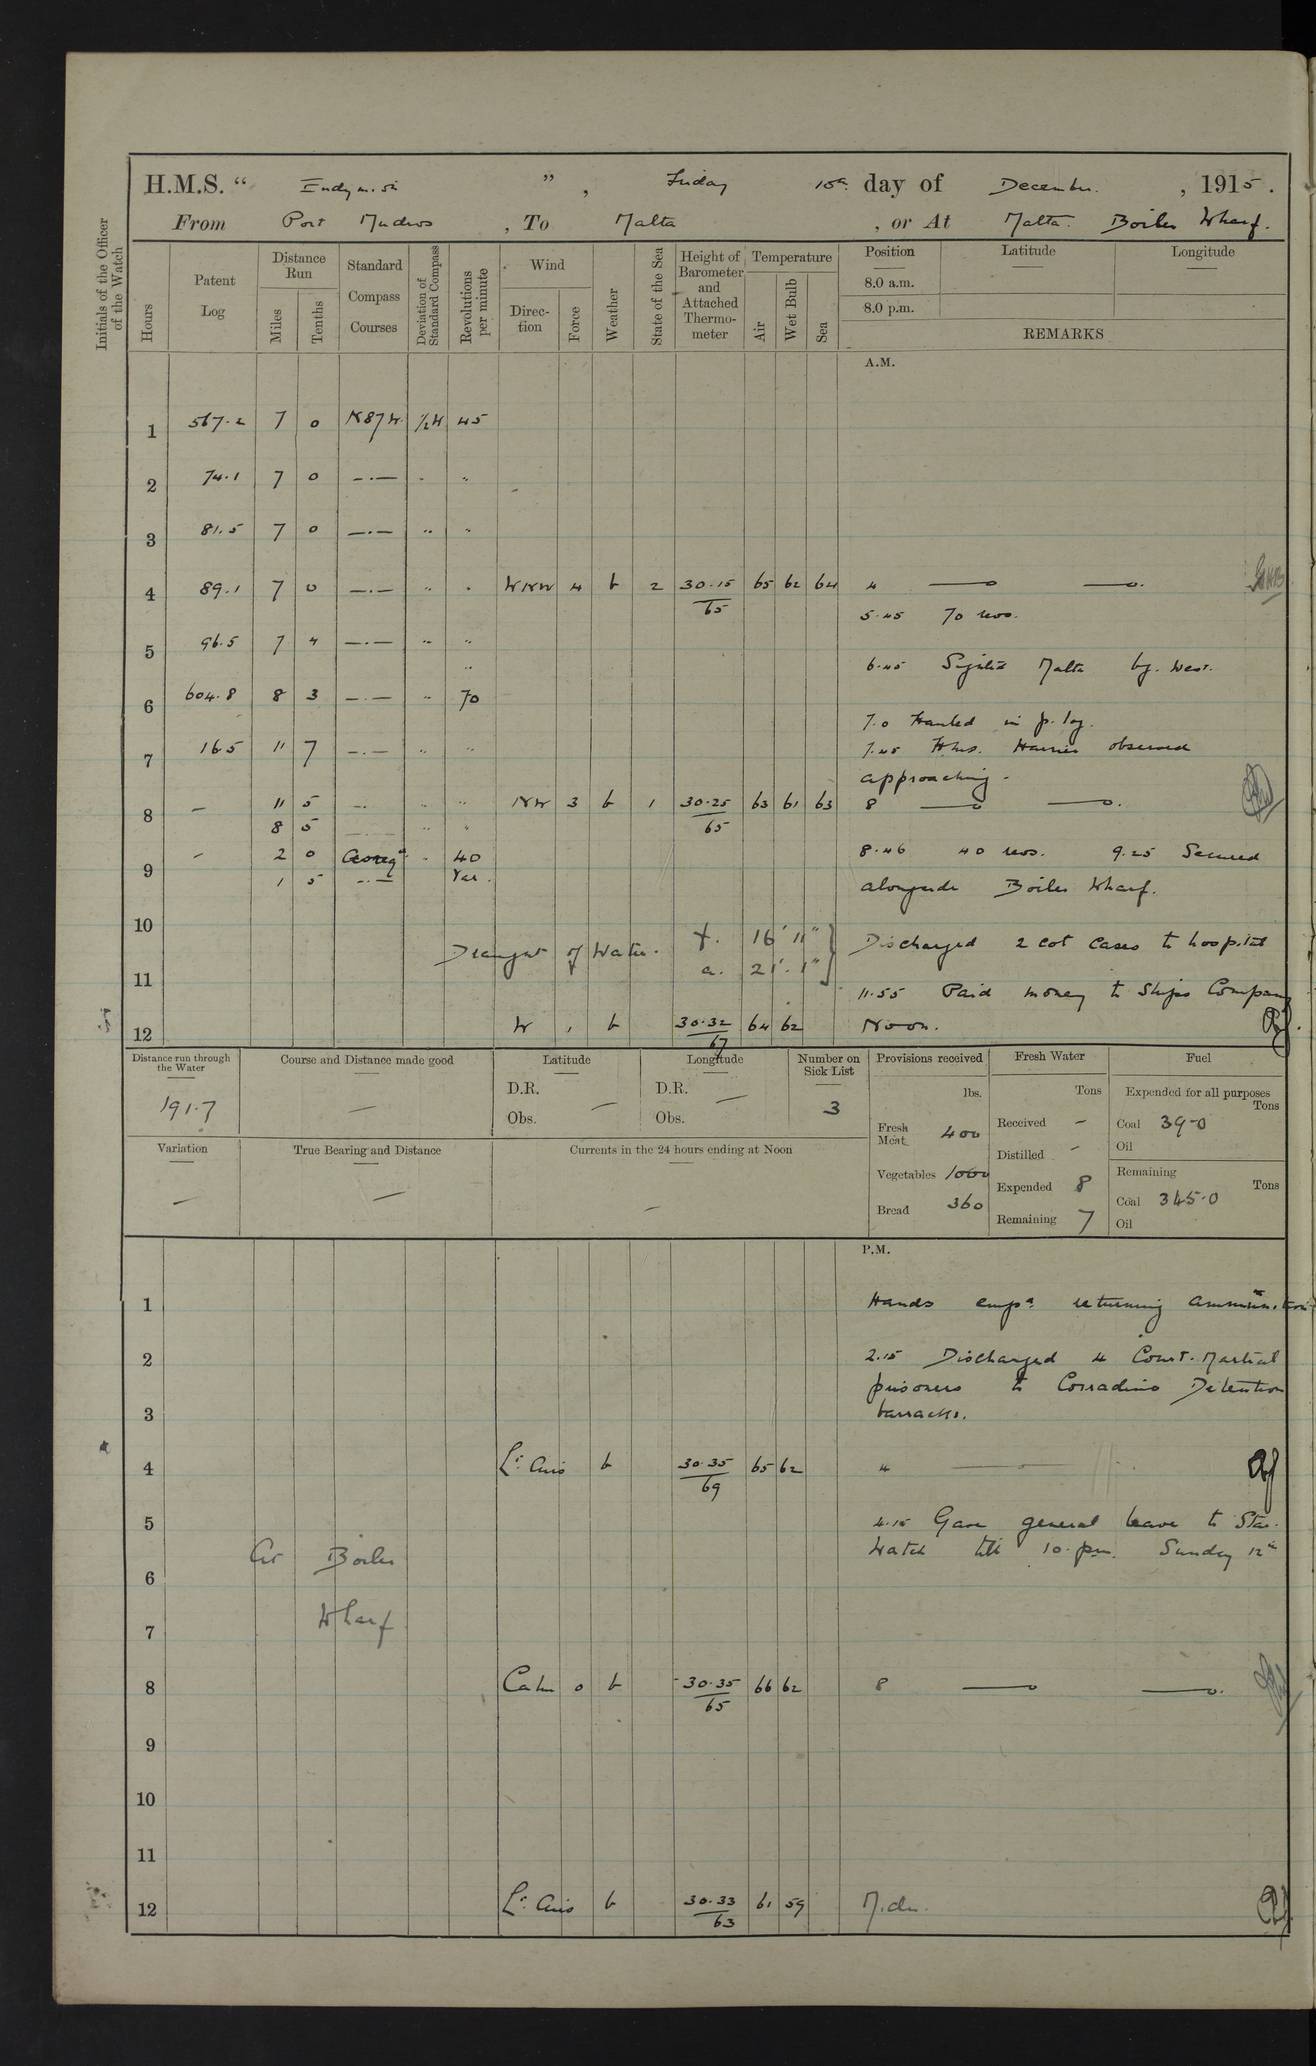 H.M.S. “ Endymion ” , Friday 10th day of December , 1915 .
From Port Mudros , To Malta , or At Malta. Boiler Wharf.
Initials of the Officer of the Watch
Hours
Patent Log
Distance Run
Miles
Tenths
Standard Compass Courses
Deviation of Standard Compass
Revolutions per minute
Wind
Direction
Force
Weather
State of the Sea
Height of Barometer and Attached Thermometer
Temperature
Air
Wet Bulb
Sea
Position
Latitude
Longitude
8.0 a.m.
8.0 p.m.
REMARKS
A.M.
1 567.2 7 0 N87W ½W 45
2 74.1 7 0 —·— " "
3 81.5 7 0 —·— " "
4 89.1 7 0 —·— " " WNW 4 b 2 30.15/65 65 62 64 4
5.45 70 revs.
5 96.5 7 4 —·— " "
6.45 Sighted Malta by. West.
6 604.8 8 3 —·— " 70
7.0 Hauled in p. log.
7 16.5 11 7 —·— " " 7.45 H.M.S. Harrier observed
approaching.
8 – 11 5 —· " " NW 3 b 1 30.25/65 63 61 63 8
8 5 " "
9 – 2 0 As req. " 40 8.46 40 revs. 9.25 Secured
1 5 —·— Var. alongside Boiler Wharf.
10
Draught of Water. f. 16' 11" Discharged 2 cot cases to hospital
a. 21'. 1"
11
11.55 Paid money to Ships Company
12 W 1 b 30.32/67 64 62 Noon.
Distance run through the Water
191.7
Course and Distance made good
—
Latitude
D.R.
Obs. —
Longitude
D.R. —
Obs.
Number on Sick List
3
Provisions received
lbs.
Fresh Meat 400
Vegetables 1000
Bread 360
Fresh Water
Tons
Received –
Distilled –
Expended 8
Remaining 7
Fuel
Expended for all purposes
Tons
Coal 39.0
Oil
Remaining
Tons
Coal 345.0
Oil
Variation
—
True Bearing and Distance
—
Currents in the 24 hours ending at Noon
—
P.M.
1 Hands empd. returning ammunition
2 2.15 Discharged 4 Court. Martial
prisoners to Corradino Detention
3 barracks.
4 Lt. Airs b 30.35/69 65 62 4
5 4.15 Gave general leave to Star.
At Boiler Watch till 10. pm. Sunday 12th
6
Wharf
7
8 Calm 0 b 30.35/65 66 62 8
9
10
11
12 Lt. Airs b 30.33/63 61 59 Mid.